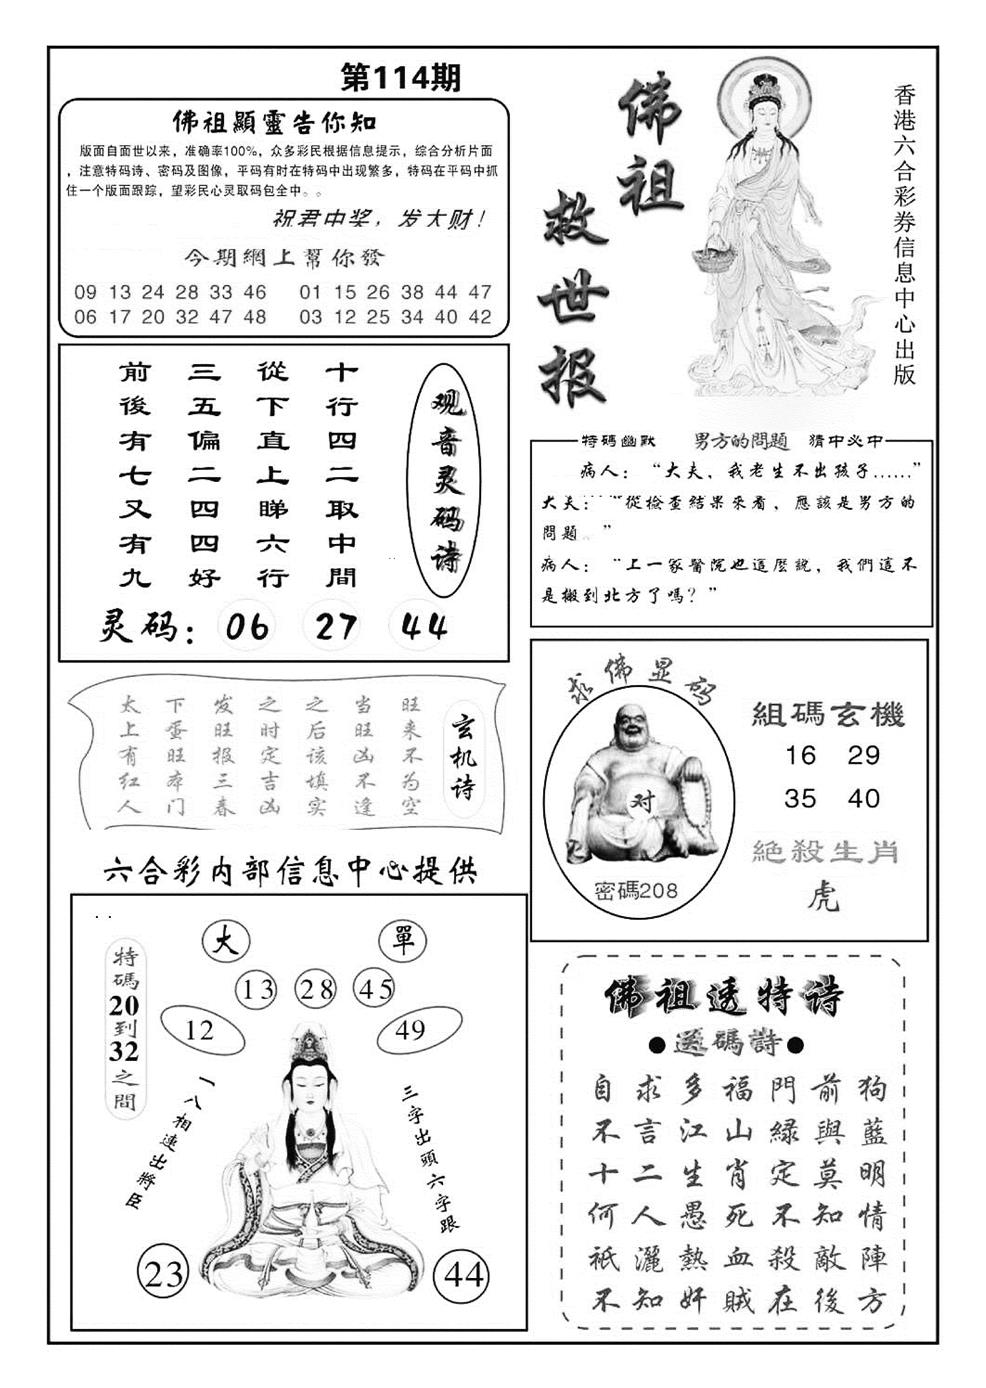 第114期
佛祖顯靈告你知
版面自面世以来，准确率100%，众多彩民根据信息提示，综合分析片面
，注意特码诗、密码及图像，平码有时在特码中出现繁多，特码在平码中抓
住一个版面跟踪，望彩民心灵取码包全中。。
祝君中奖，发大财！
今期網上幫你發
09 13 24 28 33 46 01 15 26 38 44 47
06 17 20 32 47 48 03 12 25 34 40 42
佛祖
救世报
香港六合彩券信息中心出版
观音灵码诗
十行四二取中間
從下直上睇六行
三五偏二四四好
前後有七又有九
灵码：06 27 44
特碼幽默 男方的問題 猜中必中
病人：“大夫，我老生不出孩子......”
大夫：“從檢查結果來看，應該是男方的
問題。”
病人：“上一家醫院也這麼說，我們這不
是搬到北方了嗎？”
玄机诗
旺来不为空
当旺凶不逢
之后该填实
之时定吉凶
发旺报三春
下蛋旺本门
太上有红人
求佛显码
对
密碼208
組碼玄機
16 29
35 40
絕殺生肖
虎
六合彩内部信息中心提供
大 單
13 28 45
12 49
特碼20到32之間
一八相連出將臣
三字出頭六字跟
23 44
佛祖透特诗
●送碼詩●
自求多福門前狗
不言江山緑與藍
十二生肖定莫明
何人愚死不知情
祇灑熱血殺敵陣
不知奸賊在後方